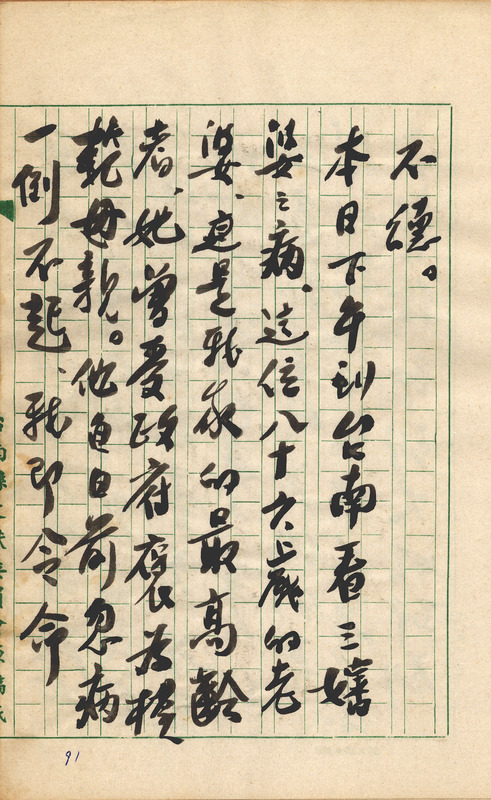 不德。
本日下午到台南看三嬸
婆之病、這位八十六歲的老
婆、更是我家的最高齡
者、她曾受政府褒為模
範母親。他自日前忽病
一倒不起、我即令命
91